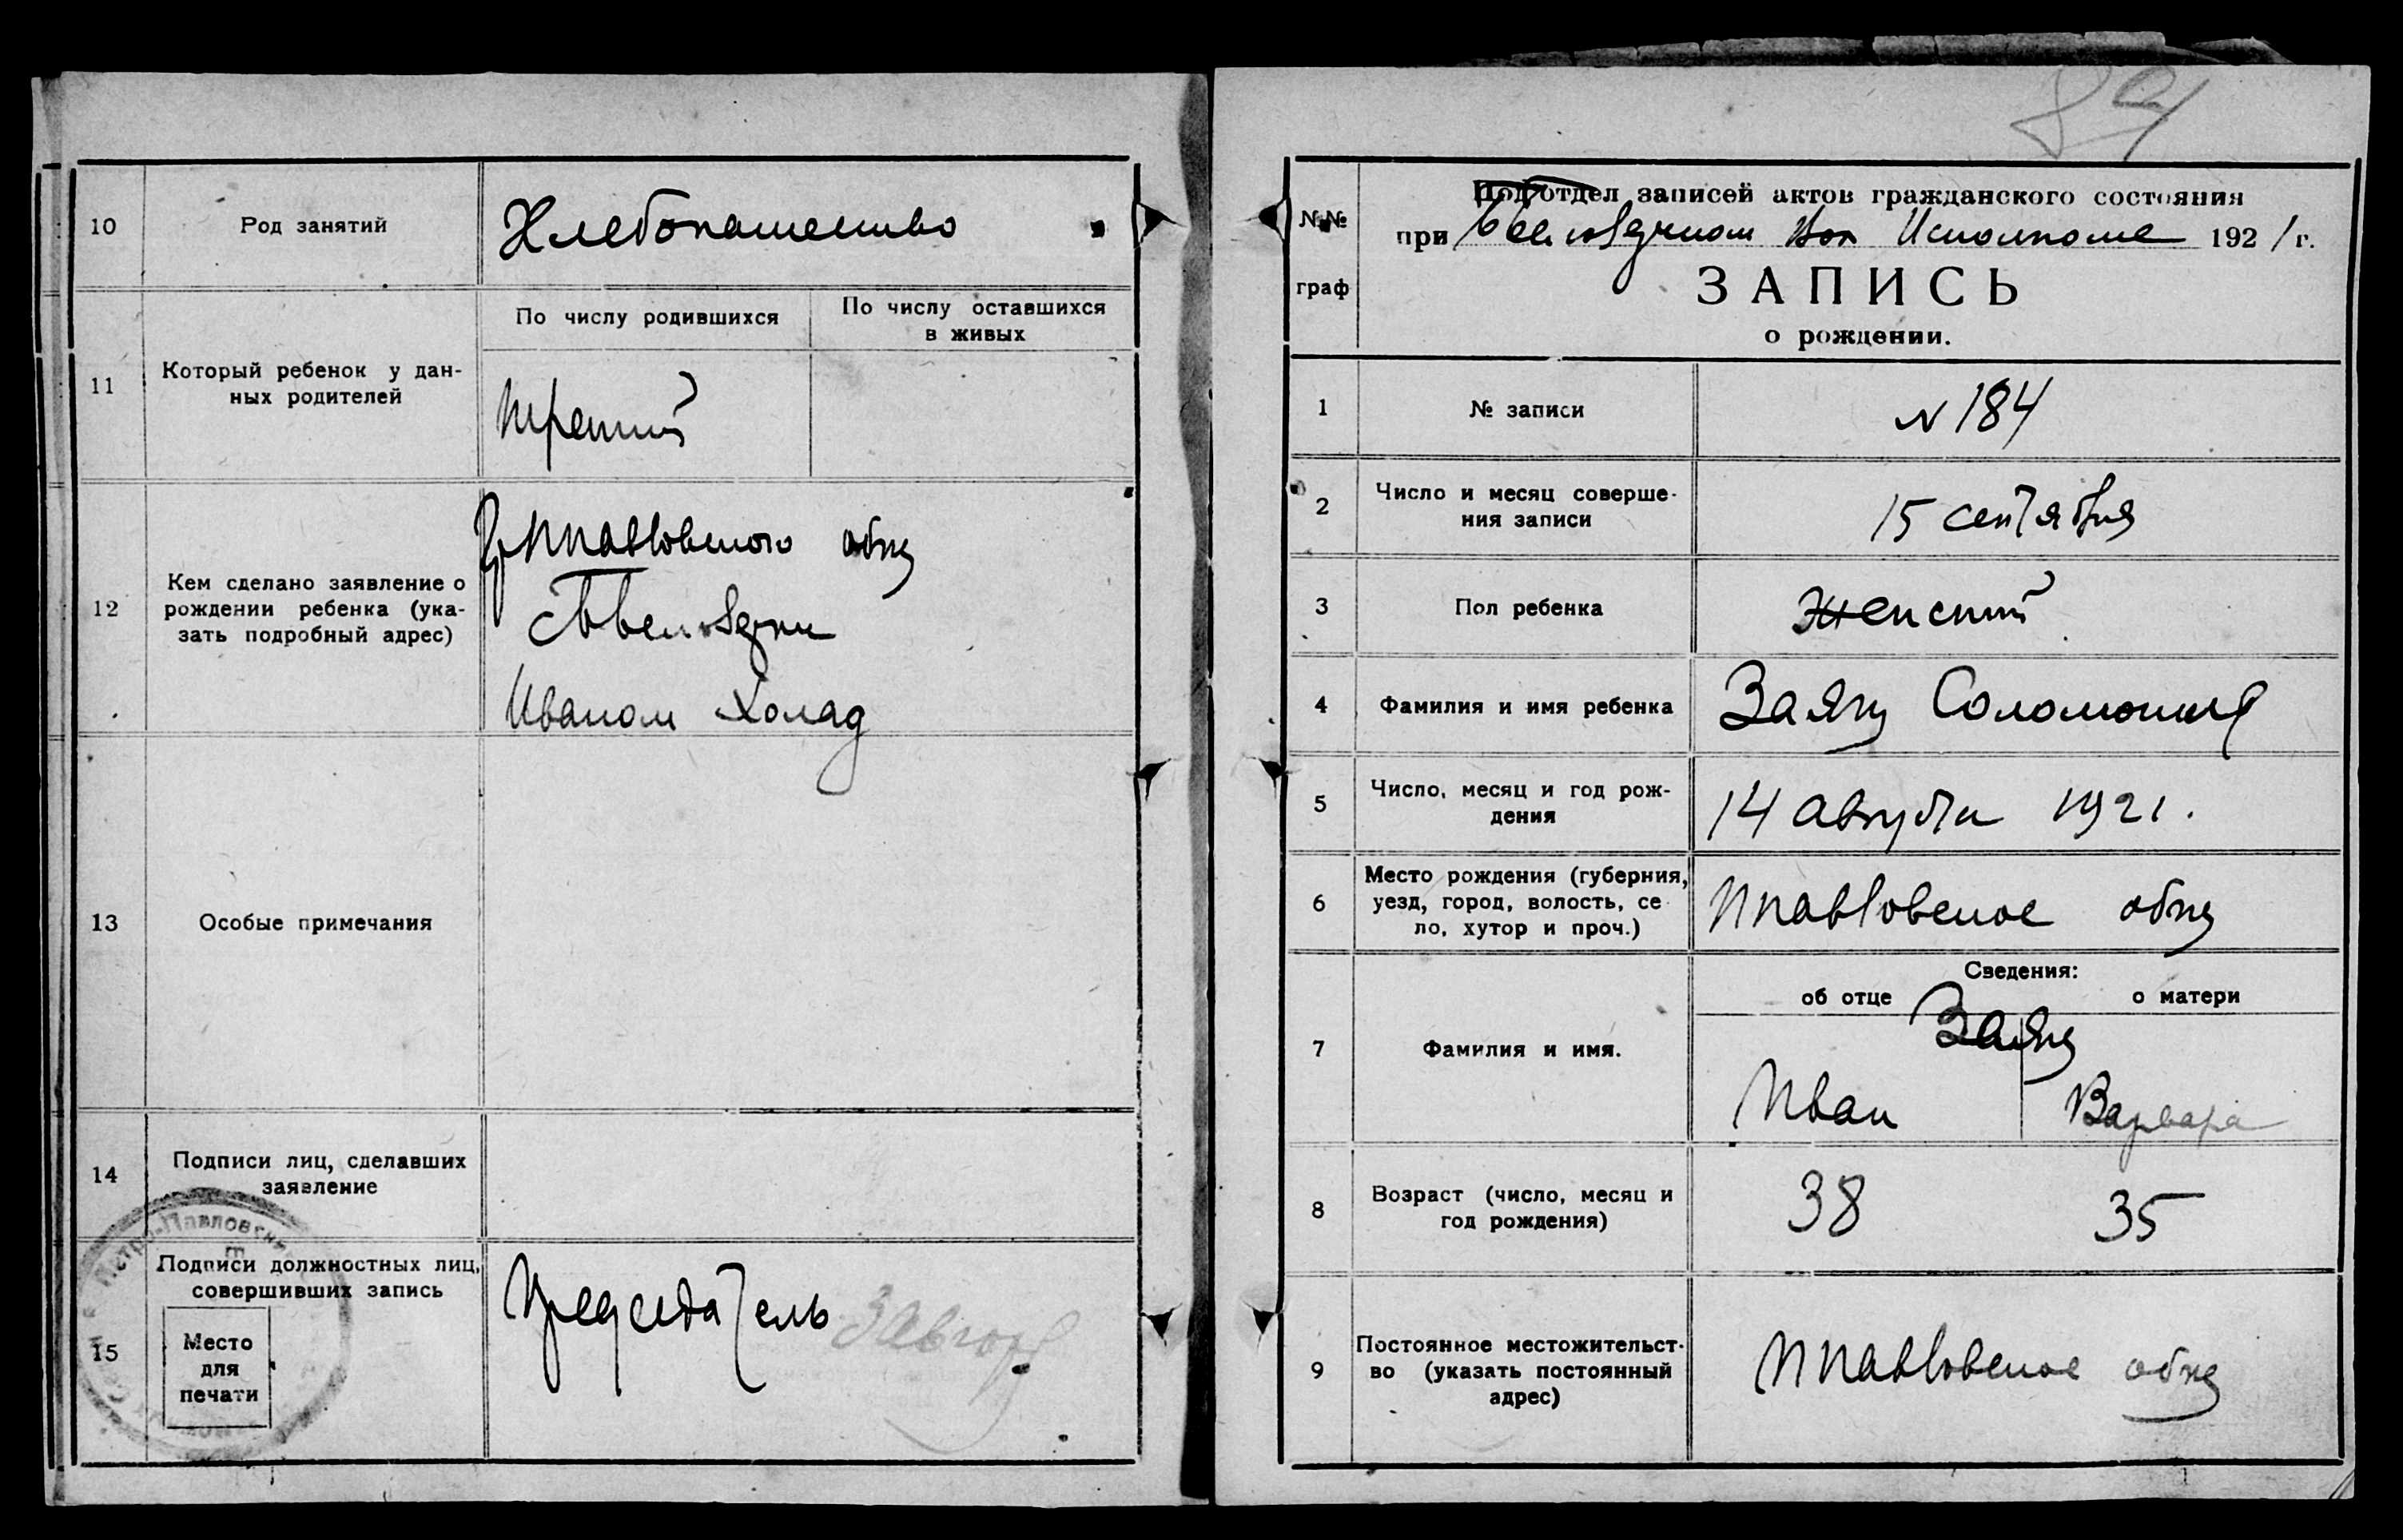 10
Род занятий
Хлебопашество
11
Который ребенок у дан-
ных родителей
По числу родившихся
По числу оставшихся
в живых
третий
12
Кем сделано заявление о
рождении ребенка (ука-
зать подробный адрес)
Гр Ппавловского общ
Иваном
13
Особые примечания
14
Подписи лиц, сделавших
заявление
15
Подписи должностных лиц,
совершивших запись
Место
для
печати
Петро-Павловск
Председатель
84
№№
граф
Подотдел записей актов гражданского состояния
при Вол Исполкоме 1921 г.
ЗАПИСЬ
о рождении.
1
№ записи
N 184
2
Число и месяц соверше-
ния записи
15 сентября
3
Пол ребенка
Женский
4
Фамилия и имя ребенка
Заяц Соломония
5
Число, месяц и год рож-
дения
14 августа 1921.
6
Место рождения (губерния,
уезд, город, волость, се
ло, хутор и проч.)
Ппавловское общ
7
Фамилия и имя.
Сведения:
об отце
о матери
Заяц
Иван
Варвара
8
Возраст (число, месяц и
год рождения)
38
35
9
Постоянное местожительст-
во (указать постоянный
адрес)
Ппавловское общ